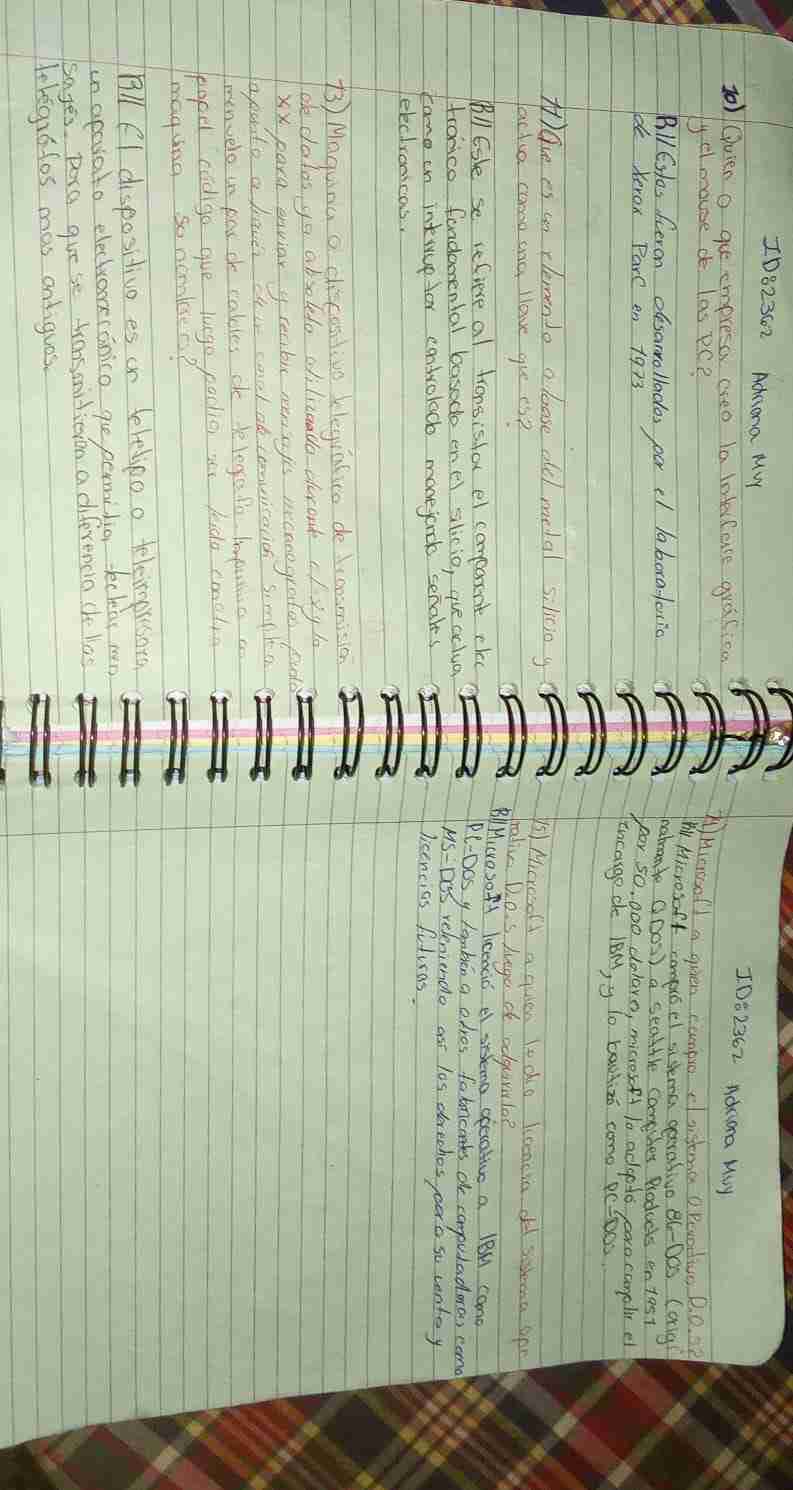 ID:2362 Adriana Muy
10) Quien o que empresa creo la interface gráfica
y el mouse de las PC?
R// Estas fueron desarrolladas por el laboratorio
de Xerox Parc en 1973
11) Que es un elemento a base del metal silicio y
actua como una llave que es?
R// Este se refiere al transistor el componente elec
trónico fundamental basado en el silicio, que actua
como un interruptor controlado manejando señales
electronicas.
13) Maquina o dispositivo telegráfico de transmisión
de datos ya obsoleto utilizado durante el siglo
XX para enviar y recibir mensajes mecanografiados punto
a punto a traves de un canal de comunicación simple a
menudo un par de cables de telegrafo imprimia en
papel código que luego podia ser leido con otra
maquina su nombre es?
R// El dispositivo es un teletipo o teleimpresora
un aparato electromecánico que permitia teclear men
sages. Para que se transmitieran a diferencia de los
telegráfos mas antiguos.
ID:2362 Adriana Muy
Microsoft a quien compro el sistema Operativo D.O.S?
R// Microsoft compró el sistema operativo 86-DOS (origi
nalmente QDOS) a Seattle Computer Products en 1981
por 50.000 dolares, microsoft lo adaptó para cumplir el
encargo de IBM, y lo bautizó como PC-DOS.
15) Microsoft a quien le dio licencia del sistema ope
rativo D.O.S luego de adquirirlo?
R// Microsoft licenció el sistema operativo a IBM como
PC-DOS y tambien a otros fabricantes de computadoras como
MS-DOS reteniendo asi los derechos para su venta y
licencias futuras.